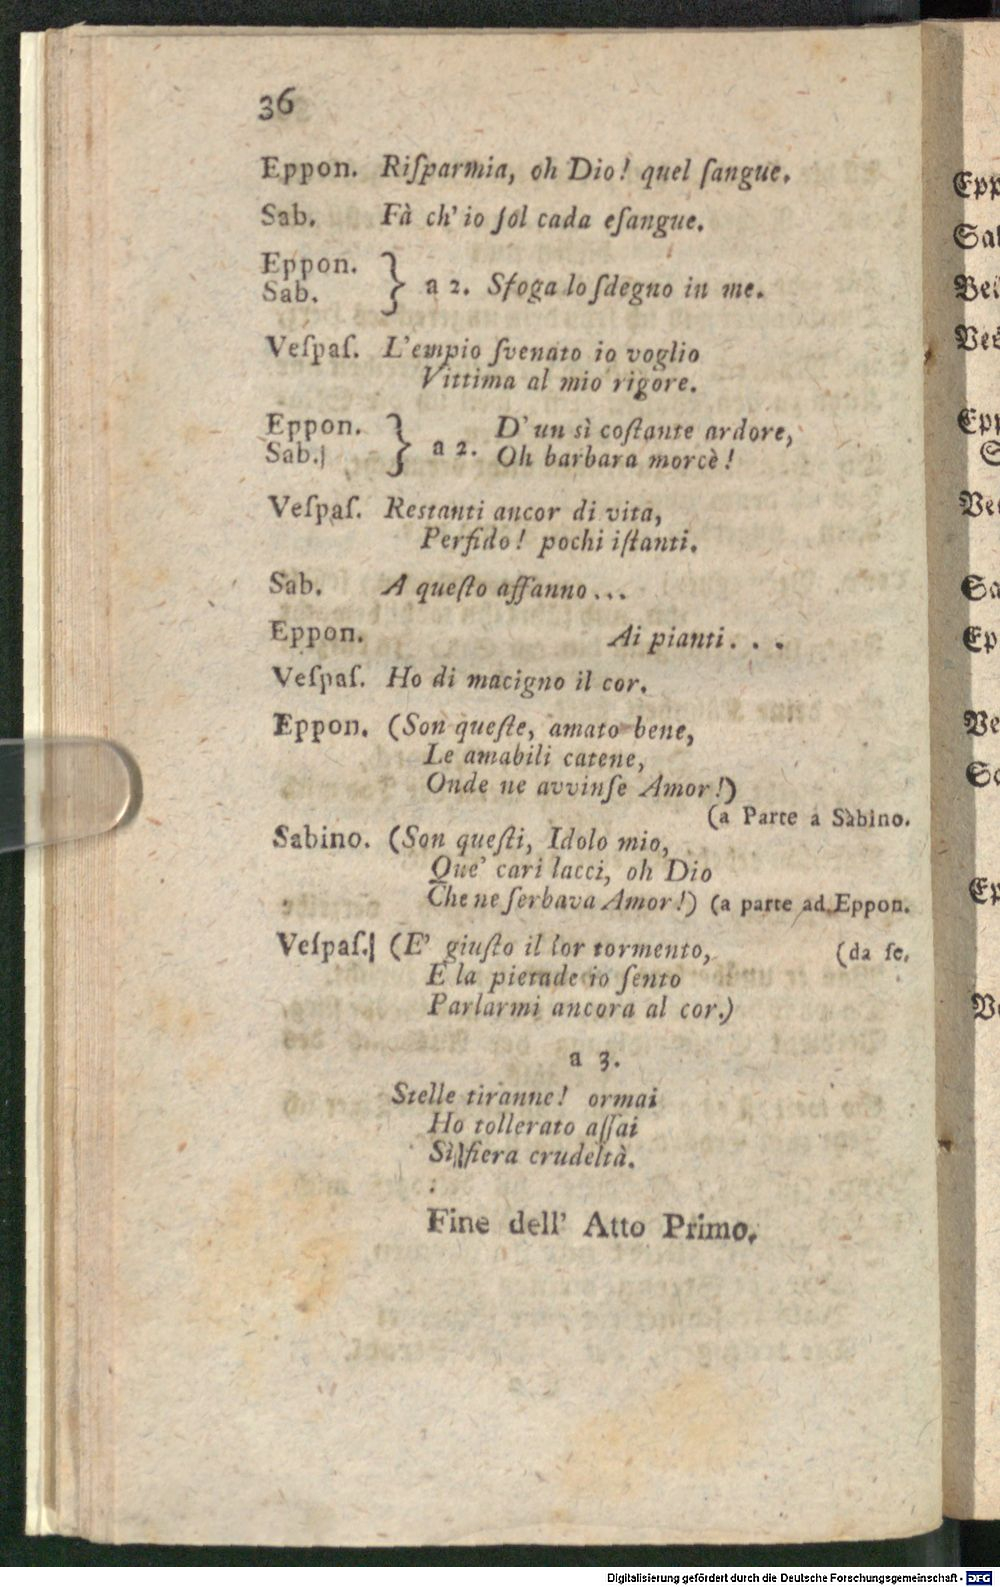 36
Eppon. Riſparmia, oh Dio! quel ſangue.
Sab. Fà ch' io ſol cada eſangue.
Eppon.
Sab. } a 2. Sfoga lo ſdegno in me.
Veſpaſ. L'empio ſvenato io voglio
Vittima al mio rigore.
Eppon. D' un sì coſtante ardore,
Sab. } a 2. Oh barbara morcè!
Veſpaſ. Restanti ancor di vita,
Perfido! pochi iſtanti.
Sab. A queſto affanno...
Eppon. Ai pianti...
Veſpaſ. Ho di macigno il cor.
Eppon. (Son queſte, amato bene,
Le amabili catene,
Onde ne avvinſe Amor!)
(a Parte a Sabino.
Sabino. (Son queſti, Idolo mio,
Que' cari lacci, oh Dio
Che ne ſerbava Amor!) (a parte ad Eppon.
Veſpaſ. (E' giuſto il lor tormento, (da se.
E la pietade io ſento
Parlarmi ancora al cor.)
a 3.
Stelle tiranne! ormai
Ho tollerato aſſai
Sì fiera crudeltà.
Fine dell' Atto Primo.
Epp
Sab
Bei
Ves
Epp
S
Ves
Sa
Ep
Ve
Sa
Ep
Ve
Digitalisierung gefördert durch die Deutsche Forschungsgemeinschaft - DFG